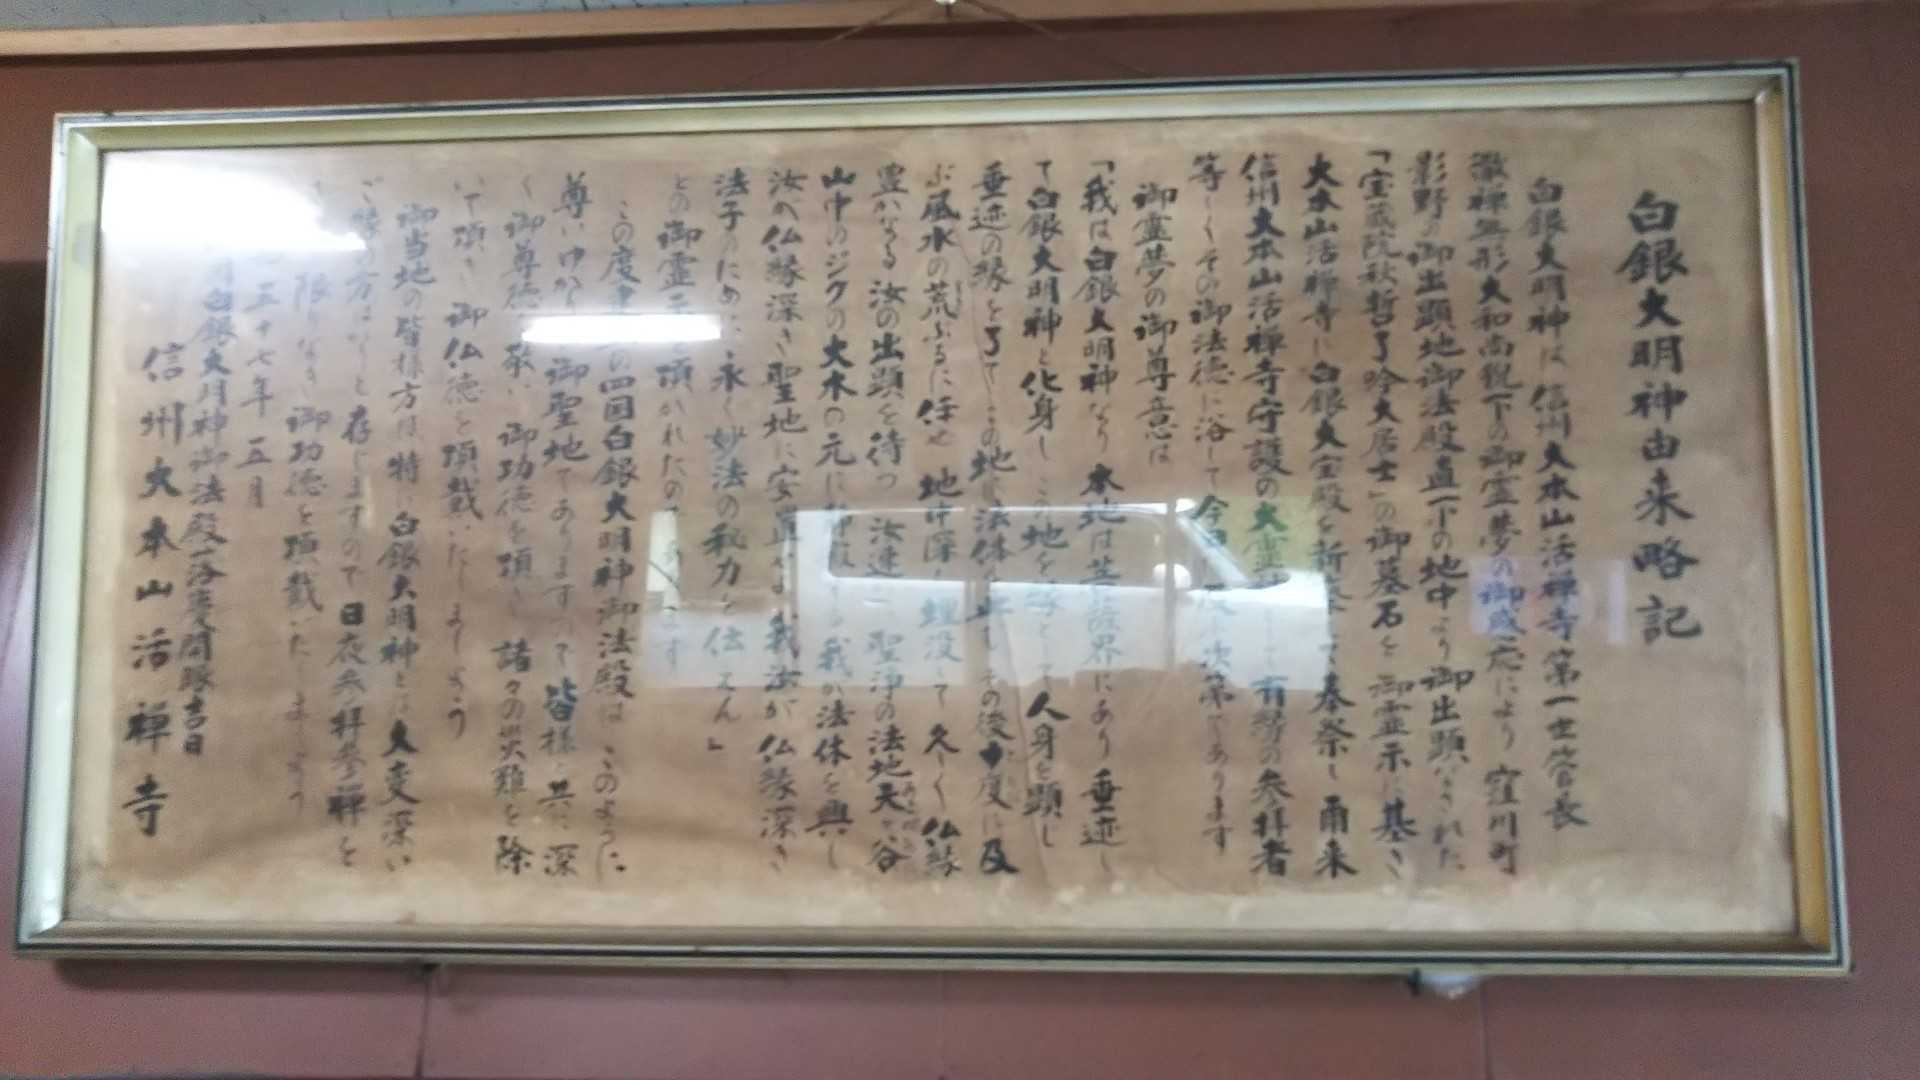 白銀大明神由来略記
白銀大明神は 信州大本山活禅寺第一世管長
徹禅無形大和尚猊下の御霊夢の御感応により 窪川町
影野の御出顕地御法殿直下の地中より御出顕なされた
「宝蔵院秋哲了吟大居士」の御墓石を 御霊示に基き
大本山活禅寺に白銀大宝殿を新築して奉祭し 爾来
信州大本山活禅寺守護の大霊神として有縁の参拝者
等しくその御法徳に浴して今日に及ぶ次第であります
御霊夢の御尊意は
「我は白銀大明神なり 本地は菩薩界にあり 垂迹し
て白銀大明神と化身し この地を縁として人身を顕し
垂迹の縁を了て この地に法体を止む その後 度に及
ぶ風水の荒ぶるに任せ 地中深く埋没して 久しく仏縁
豊かなる 汝の出顕を待つ 汝速 聖浄の法地天ヶ谷
山中のジクの大木の元に 我が法体を興し
汝が仏縁深き聖地に安置せよ 我汝が仏縁深き
法子のために永く妙法の秘力を伝えん」
との御霊示を頂かれたのであります
この度 の四国白銀大明神御法殿は このように
尊い 御聖地でありますので 皆様と共に深
く御尊徳を敬い 御功徳を頂き 諸々の災難を除
いて頂き 御仏徳を頂戴いたしましょう
御当地の皆様方は特に白銀大明神とは大変深い
ご縁の方 と存じますので日夜参拝参禅を
限りなき御功徳を頂戴いたしましょう
五十七年五月
白銀大明神御法殿落慶開眼吉日
信州大本山活禅寺